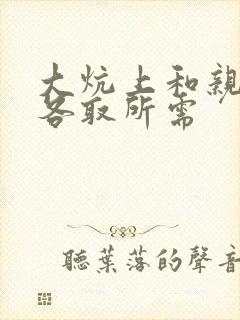 大炕上和親
各取所需
聽葉落的聲音